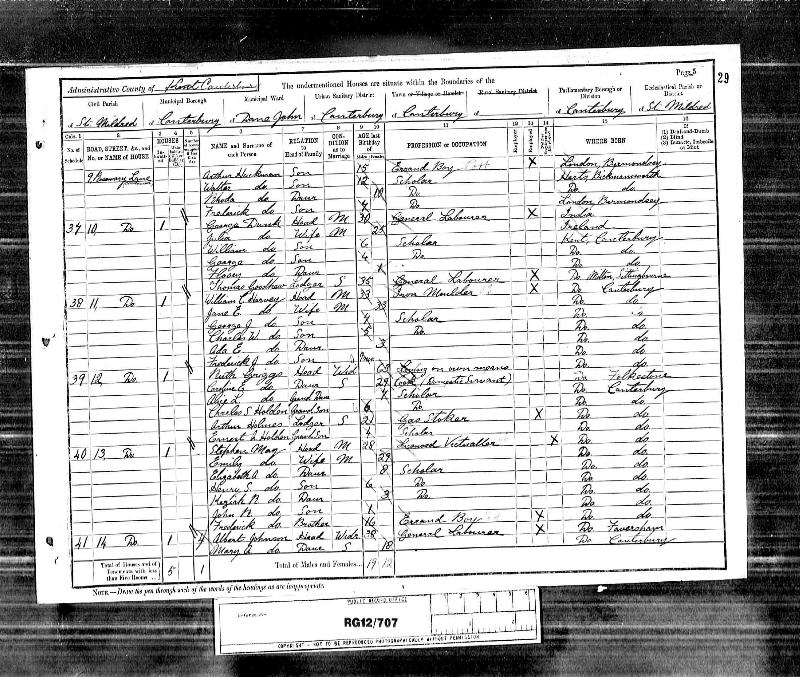 Page 5
29
Administrative County of Kent Canterbury
The undermentioned Houses are situate within the Boundaries of the
Civil Parish
Municipal Borough
Municipal Ward
Urban Sanitary District
Town or Village or Hamlet
Rural Sanitary District
Parliamentary Borough or Division
Ecclesiastical Parish or District
of St. Mildred
of Canterbury
of Dane John
of Canterbury
of Canterbury
of Canterbury
of St. Mildred
No. of Schedule
ROAD, STREET, &c., and No. or NAME of HOUSE
HOUSES
NAME and Surname of each Person
RELATION to Head of Family
CONDITION as to Marriage
AGE last Birthday of
Males Females
PROFESSION or OCCUPATION
Employer
Employed
WHERE BORN
(1) Deaf-and-Dumb
(2) Blind
(3) Lunatic, Imbecile or Idiot
9 Rosemary Lane Arthur Son 15 Errand Boy X London, Bermondsey
Walter do Son 12 Scholar Herts, Rickmansworth
Rhoda do Daur 10 Do Do do
Frederick do Son 4 Do London, Bermondsey
37 10, Do 1 George Head M 30 General Labourer X India
Julia do Wife M 25 Ireland
William do Son 6 Scholar Kent, Canterbury
George do Son 4 Do do
do Daur 1 Do do
Thomas Lodger S 35 General Labourer X Do Milton, Sittingbourne
38 11, Do 1 William C. Harvey Head M 33 Iron Moulder X Do Canterbury
Jane E. do Wife M 33 Do do
George J. do Son 7 Scholar Do
Charles W. do Son 5 Do. Do do
Ada E. do Daur 3 Do do
Frederick J. do Son Do do
39 12, Do 1 Ruth Griggs Head Wid 63 Living on own means Do Folkestone
Caroline E. do Daur S 29 Cook (Domestic Servant) Do Canterbury
Alice L. do Grand Daur 7 Scholar Do do
Charles S Holden Grand Son 6 Do Do do
Arthur Holmes Lodger S 21 Gas Stoker X Do do
Ernest Holden Grand Son 4 Scholar Do do
40 13, Do 1 Stephen May Head M 28 Licensed Victualler X Do do
Emily do Wife M 29 Do do
Elizabeth A. do Daur 8 Scholar Do do
Henry S. do Son 6 Do Do do
Keziah R. do Daur 3 Do Do do
John R. do Son 1 Do do
Frederick do Brother 16 Errand Boy X Do do
41 14 Do 1 4 Albert Johnson Head Widr 38 General Labourer X Do Faversham
Mary A. do Daur S 18 Do Canterbury
Total of Houses and of Tenements with less than Five Rooms 5 1
Total of Males and Females 19 12
NOTE.—Draw the pen through such of the words of the headings as are inappropriate.
PUBLIC RECORD OFFICE
RG12/707
COPYRIGHT - NOT TO BE REPRODUCED PHOTOGRAPHICALLY WITHOUT PERMISSION